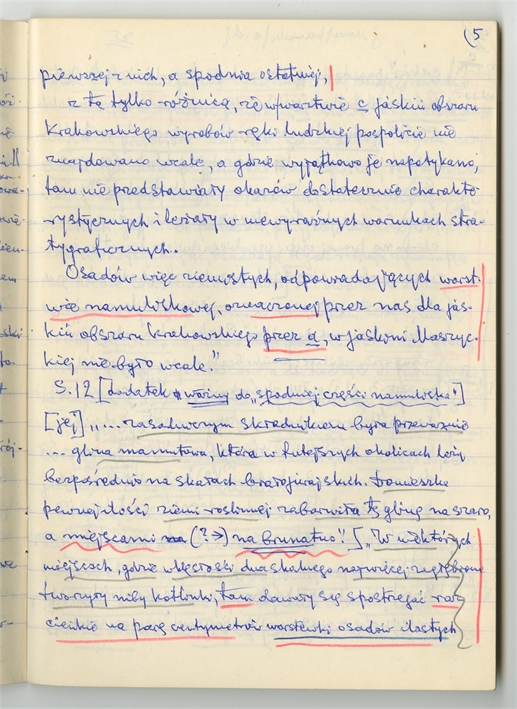 (5
pierwszej z nich, a spodnia ostatniej,
z tą tylko różnicą, że w warstwie c jaskiń obszaru
Krakowskiego wyrobów ręki ludzkiej pospolicie nie
znajdowano wcale, a gdzie wyjątkowo je napotykano,
tam nie przedstawiały okazów dostatecznie charakte-
rystycznych i leżały w niewyraźnych warunkach stra-
tygraficznych.
Osadów więc ziemistych, odpowiadających warst-
wie namuliskowej, oznaczonej przez nas dla jas-
kiń obszaru Krakowskiego przez a, w jaskini Maszyc-
kiej nie było wcale."
S. 12 [dodatek ważny do „spodniej części namuliska"]
[jej] „... zasadniczym składnikiem była przeważnie
... glina mamutowa, która w tutejszych okolicach leży
bezpośrednio na skałach białojurajskich. Domieszka
pewnej ilości ziemi roślinnej zabarwiła tę glinę na szaro,
a miejscami na (?→) na brunatno". ["W niektórych
miejscach, gdzie wklęsłości dna skalnego najwięcej zagłębione
tworzyły niby kotlinki, tam dawały się spostrzegać
cienkie na parę centymetrów warstewki osadów ilastych